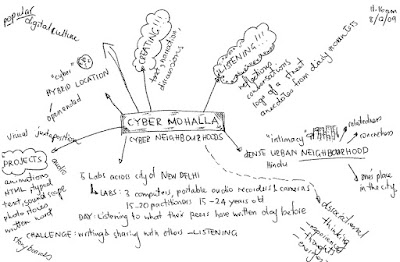 popular
digital culture
8/12/09
"cyber"
HYBRID LOCATION
open ended
CREATING!!!
text & narration
discussions
LISTENING!!!
reflections
conversations
logs of a street
anecdotes from daily moments
CYBER MOHALLA
CYBER NEIGHBOURHOODS
visual juxtaposition
"intimacy"
relatedness
concreteness
DENSE URBAN NEIGHBOURHOOD
Hindu
one's place
in the city
PROJECTS
audio
animations
HTML, typed
text, sound scape
photo stories
written word
storyboards
5 Labs across city of NEW DELHI
LABS: 3 computers, portable audio recorders & cameras
15-20 practitioners 15-24 years old
DAY: Listening to what their peers have written day before
CHALLENGE: writing & sharing with others - LISTENING
thinking
experiences
thoughts